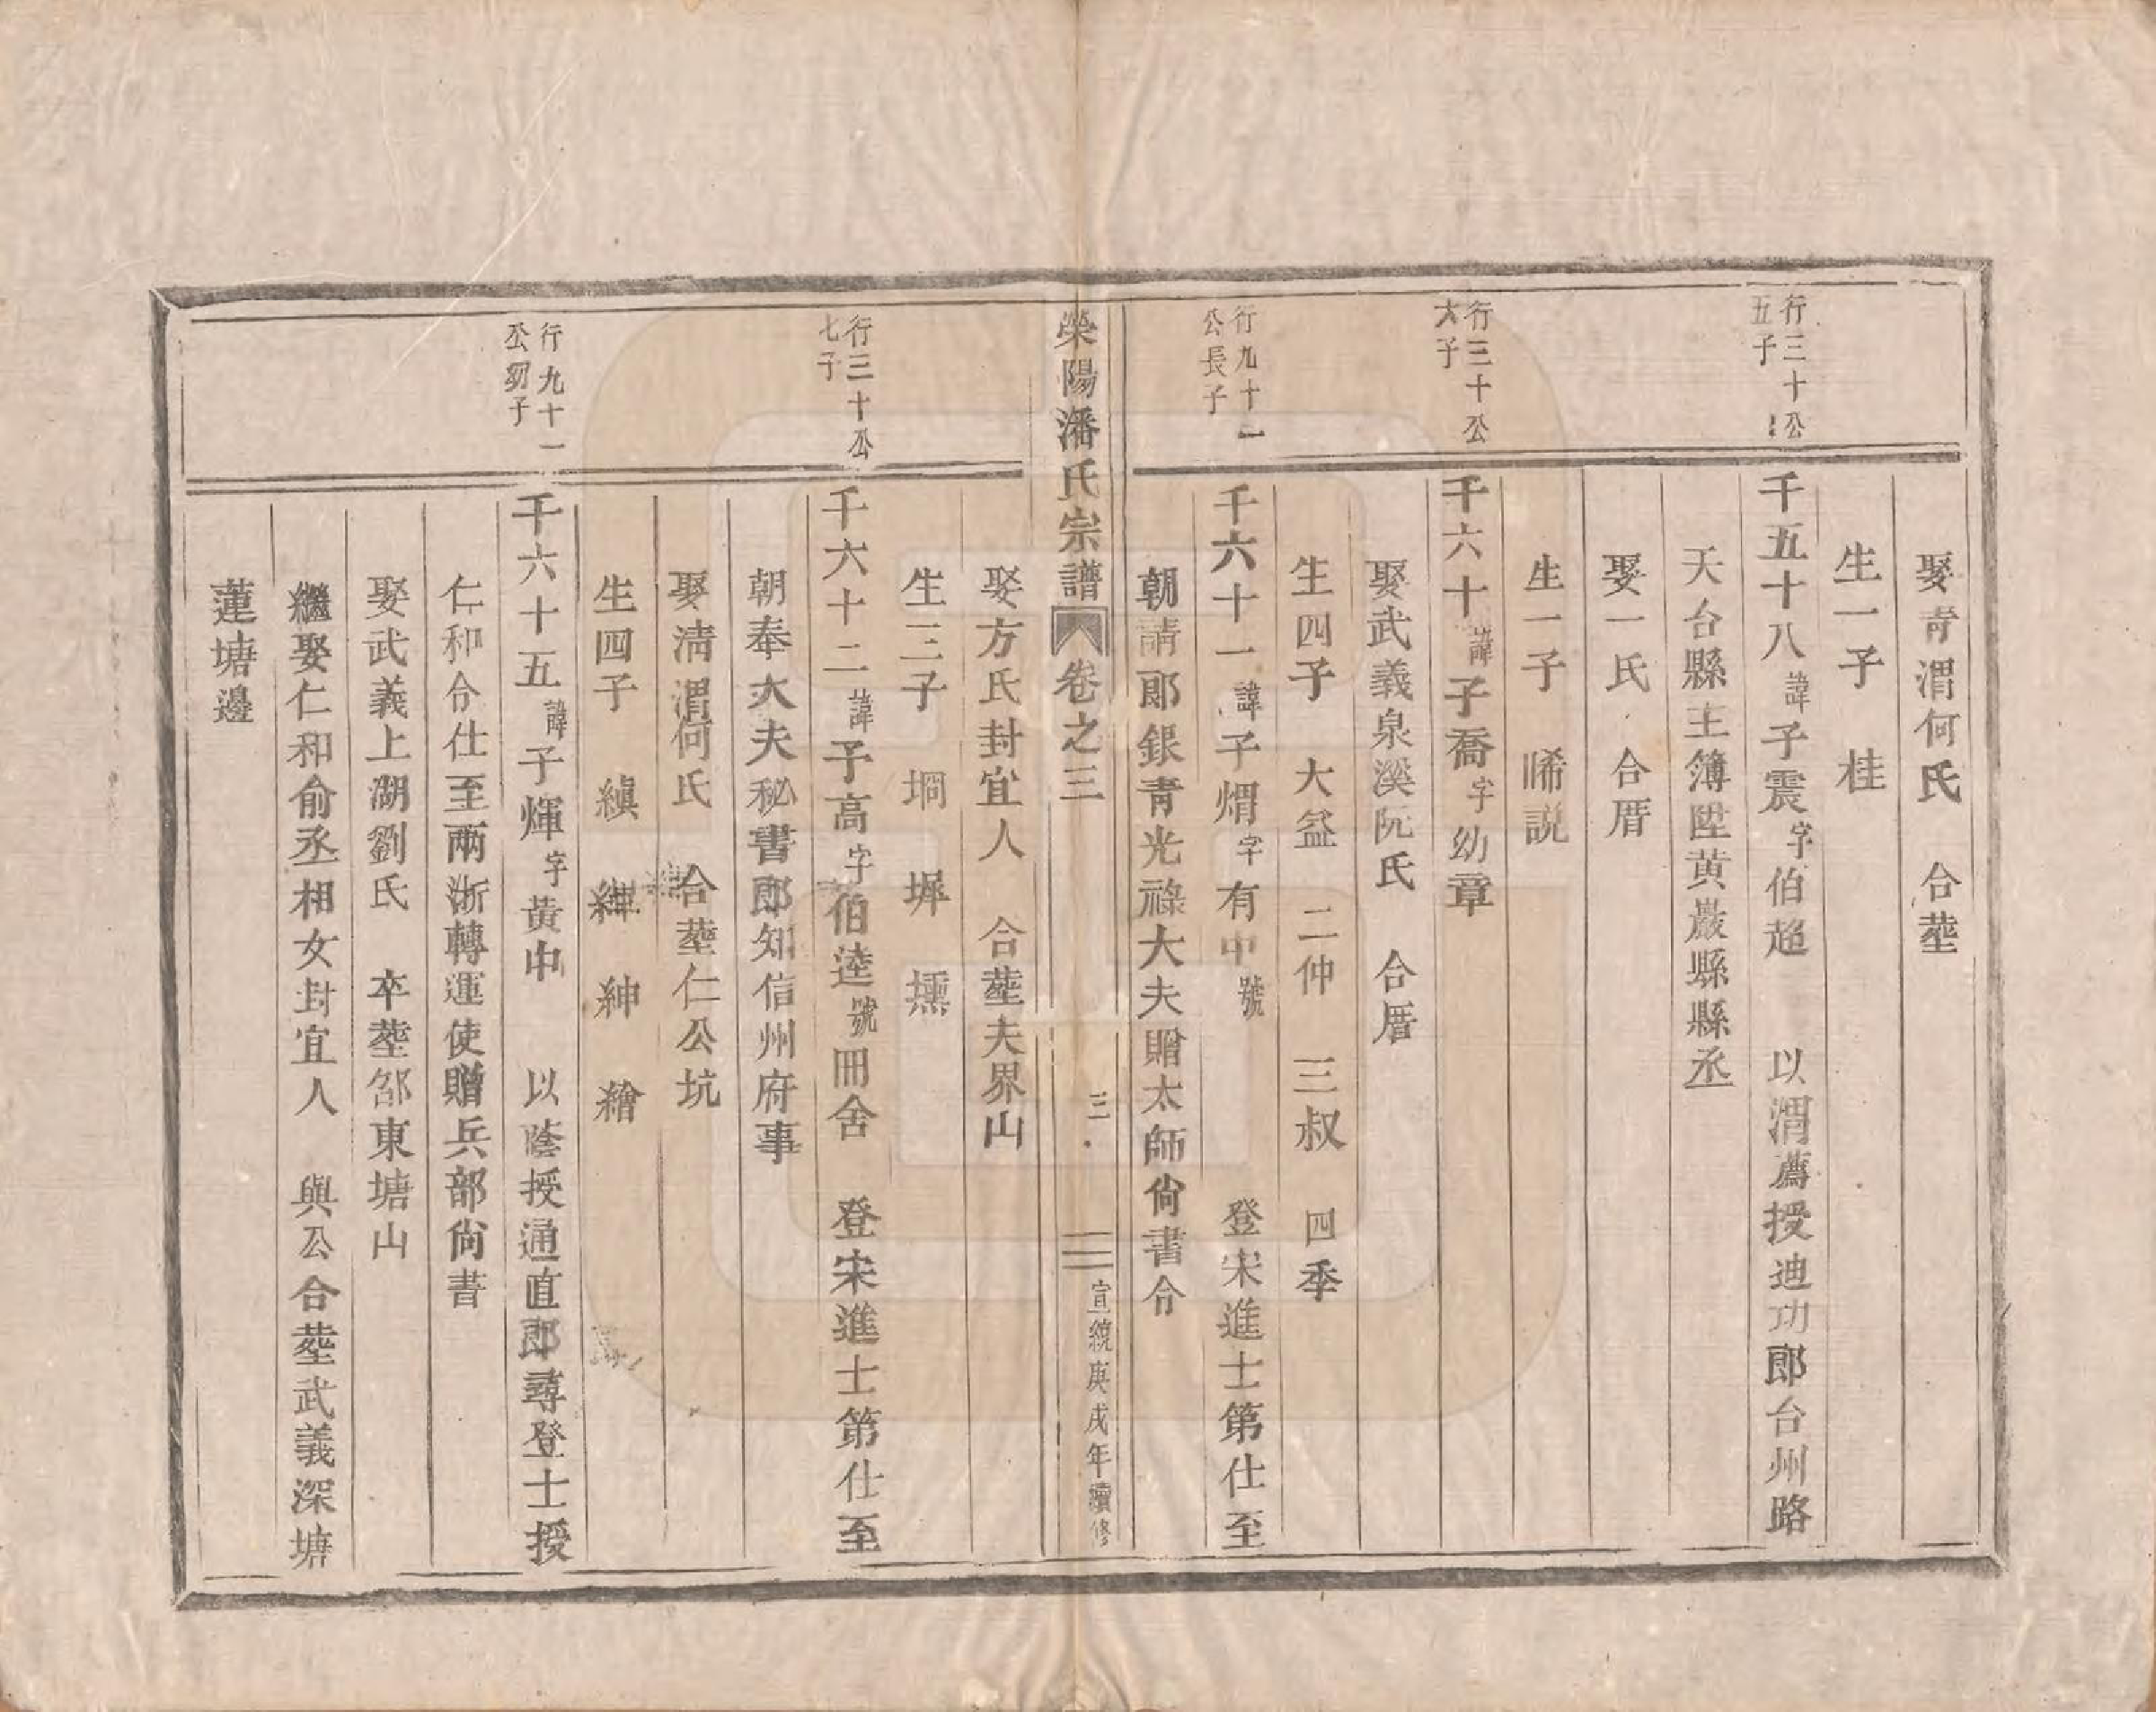 娶青渭何氏　合塟
生一子　桂
行三十公五子
千五十八諱子震字伯趨　以渭薦授迪功郎台州路
天台縣主簿陞黄巖縣縣丞
娶一氏　合厝
生一子　晞説
行三十公六子
千六十諱子喬字幼章
娶武義泉溪阮氏　合厝
生四子　大益　二仲　三叔　四季
行九十一公長子
千六十一諱子熠字有中號　登宋進士第仕至
朝請郎銀青光祿大夫贈太師尙書令
榮陽潘氏宗譜　卷之三　三　宣統庚戌年續修
娶方氏封宜人　合塟夫界山
生三子　坰　墀　壎
行三十公七子
千六十二諱子高字伯逵號冊舍　登宋進士第仕至
朝奉大夫秘書郎知信州府事
娶淸渭何氏　合塟仁公坑
生四子　縝　繟　紳　繪
行九十一公幼子
千六十五諱子煇字黄中　以蔭授通直郎尋登士授
仁和令仕至兩浙轉運使贈兵部尙書
娶武義上湖劉氏　卒塟郃東塘山
繼娶仁和俞丞相女封宜人　與公合塟武義深塘
蓮塘邊